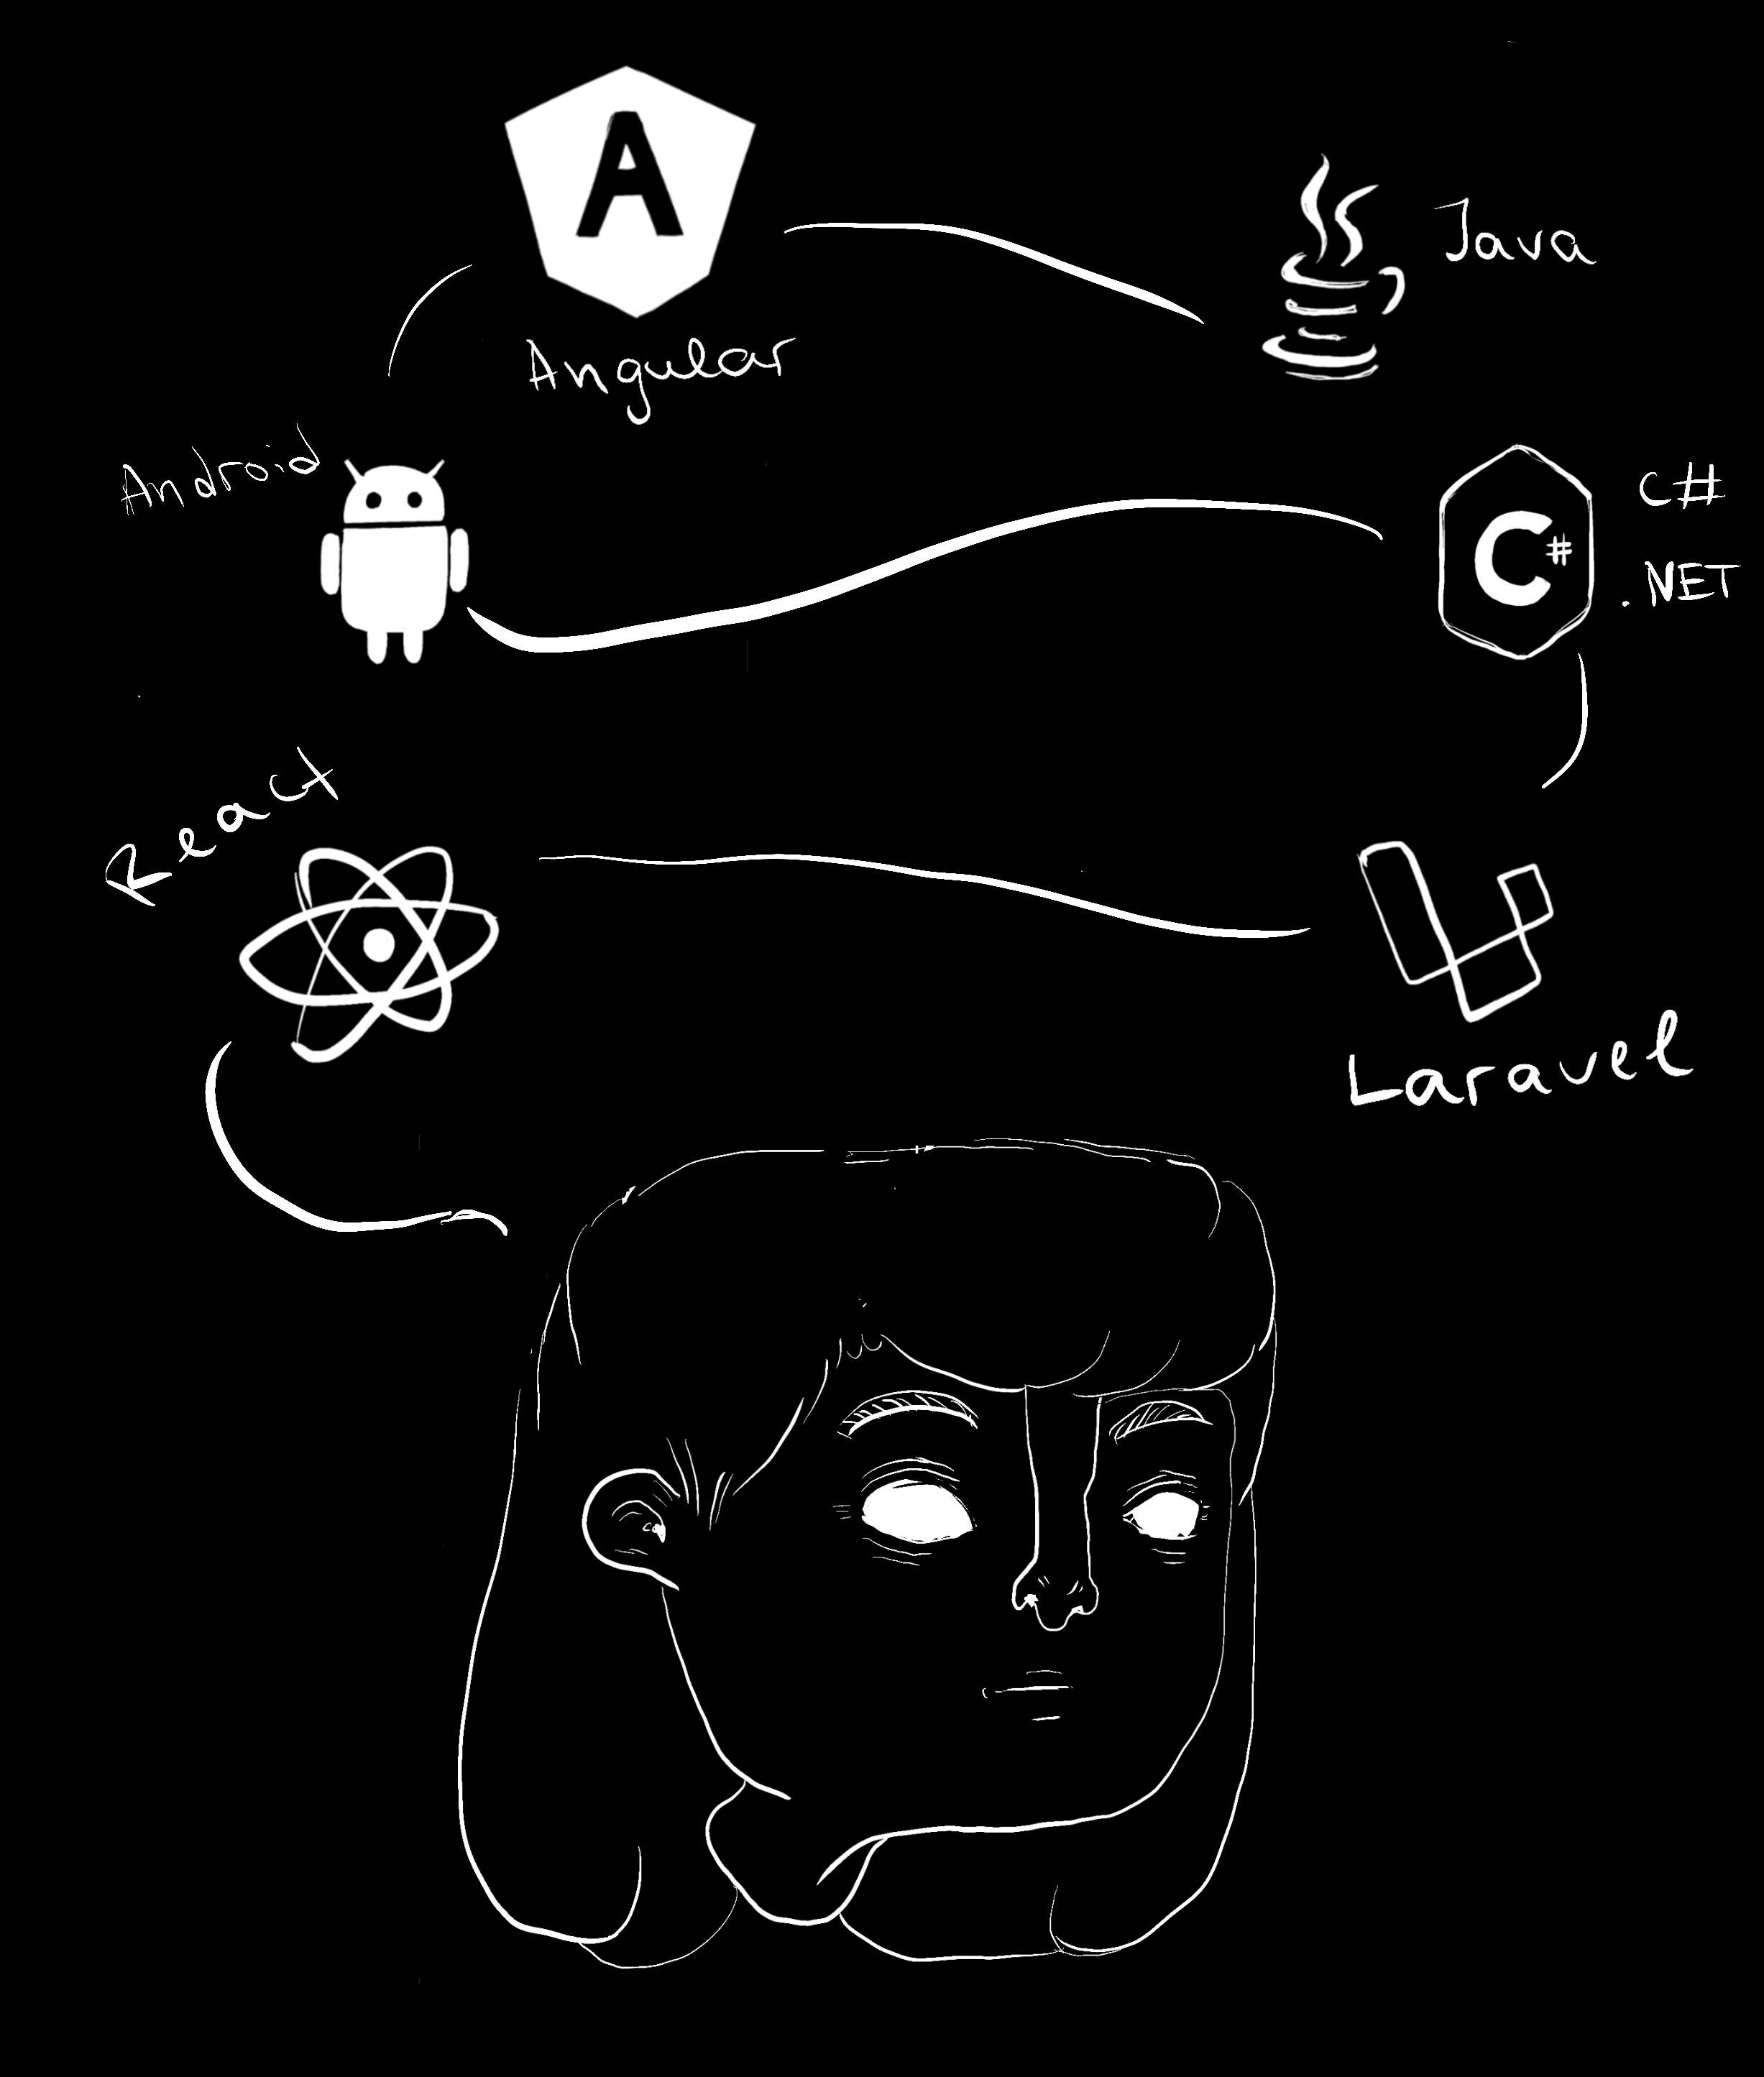 A
Angular
Java
Android
C#
C#
.NET
React
Laravel